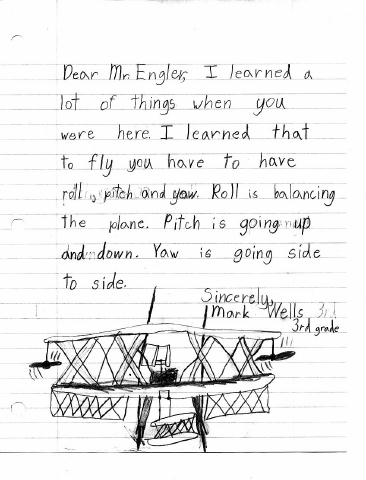 Dear Mr. Engler, I learned a
lot of things when you
were here. I learned that
to fly you have to have
roll, pitch and yaw. Roll is balancing
the plane. Pitch is going up
and down. Yaw is going side
to side.
Sincerely,
Mark Wells 3rd
3rd grade